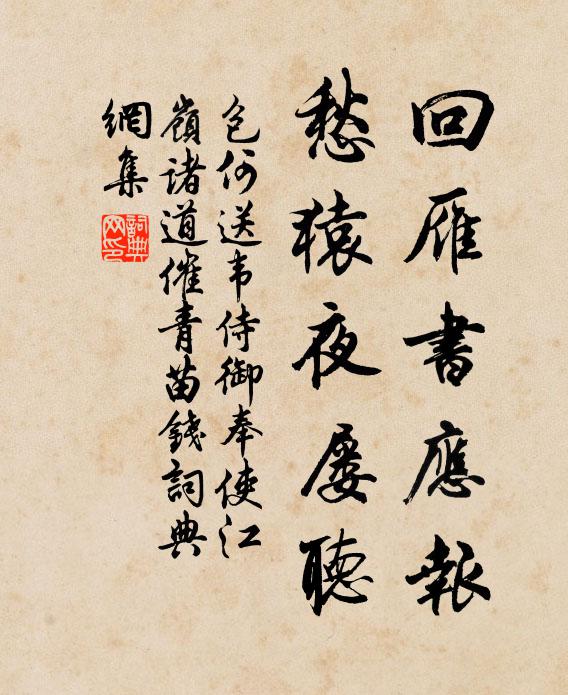 回雁書應報
愁猿夜屡聽
包何送韦侍御奉使江
嶺诸道催青苗錢詞典
網集
詞典
网印